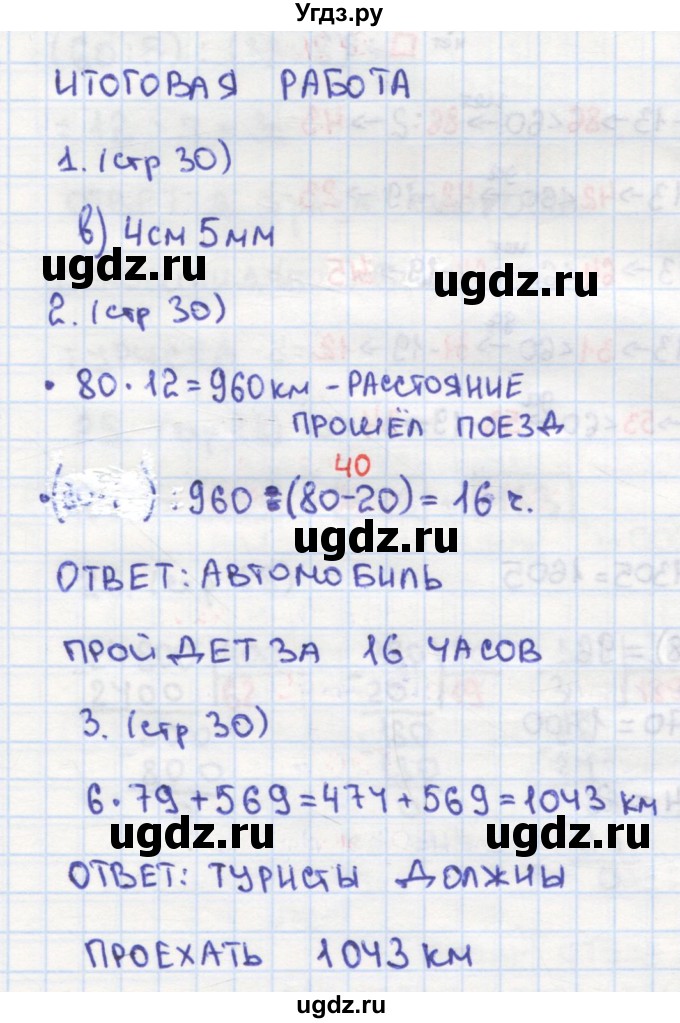 Угдз.ру
ИТОГОВАЯ РАБОТА
1. (стр 30)
в) 4см 5мм
ugdz.ru ugdz.ru
2. (стр 30)
• 80 · 12 = 960 км - РАССТОЯНИЕ
ПРОШЁЛ ПОЕЗД
40
• : 960 : (80-20) = 16 ч.
ugdz.ru
ОТВЕТ: АВТОМОБИЛЬ
ПРОЙДЕТ ЗА 16 ЧАСОВ
3. (стр 30)
6 · 79 + 569 = 474 + 569 = 1043 км
ugdz.ru ugdz.ru
ОТВЕТ: ТУРИСТЫ ДОЛЖНЫ
ПРОЕХАТЬ 1043 КМ
ugdz.ru